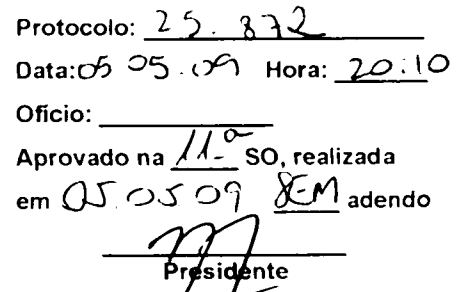 Protocolo: 25.872
Data: 05 05.09 Hora: 20:10
Ofício:
Aprovado na 11.ª SO, realizada
em 05.05 09 SEM adendo
Presidente